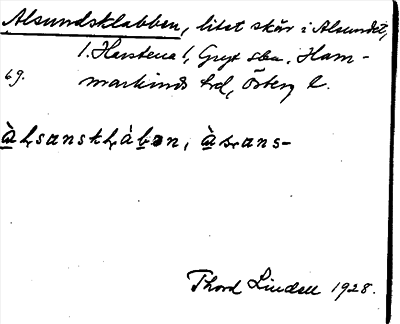 Alsundsklabben, litet skär i Alsundet,
1. Harstena 1, Gryt sn, Ham-
69. markinds hd, Österg l.
àl̥sanskl̥àbən, àsans-
Thord Lindell 1928.